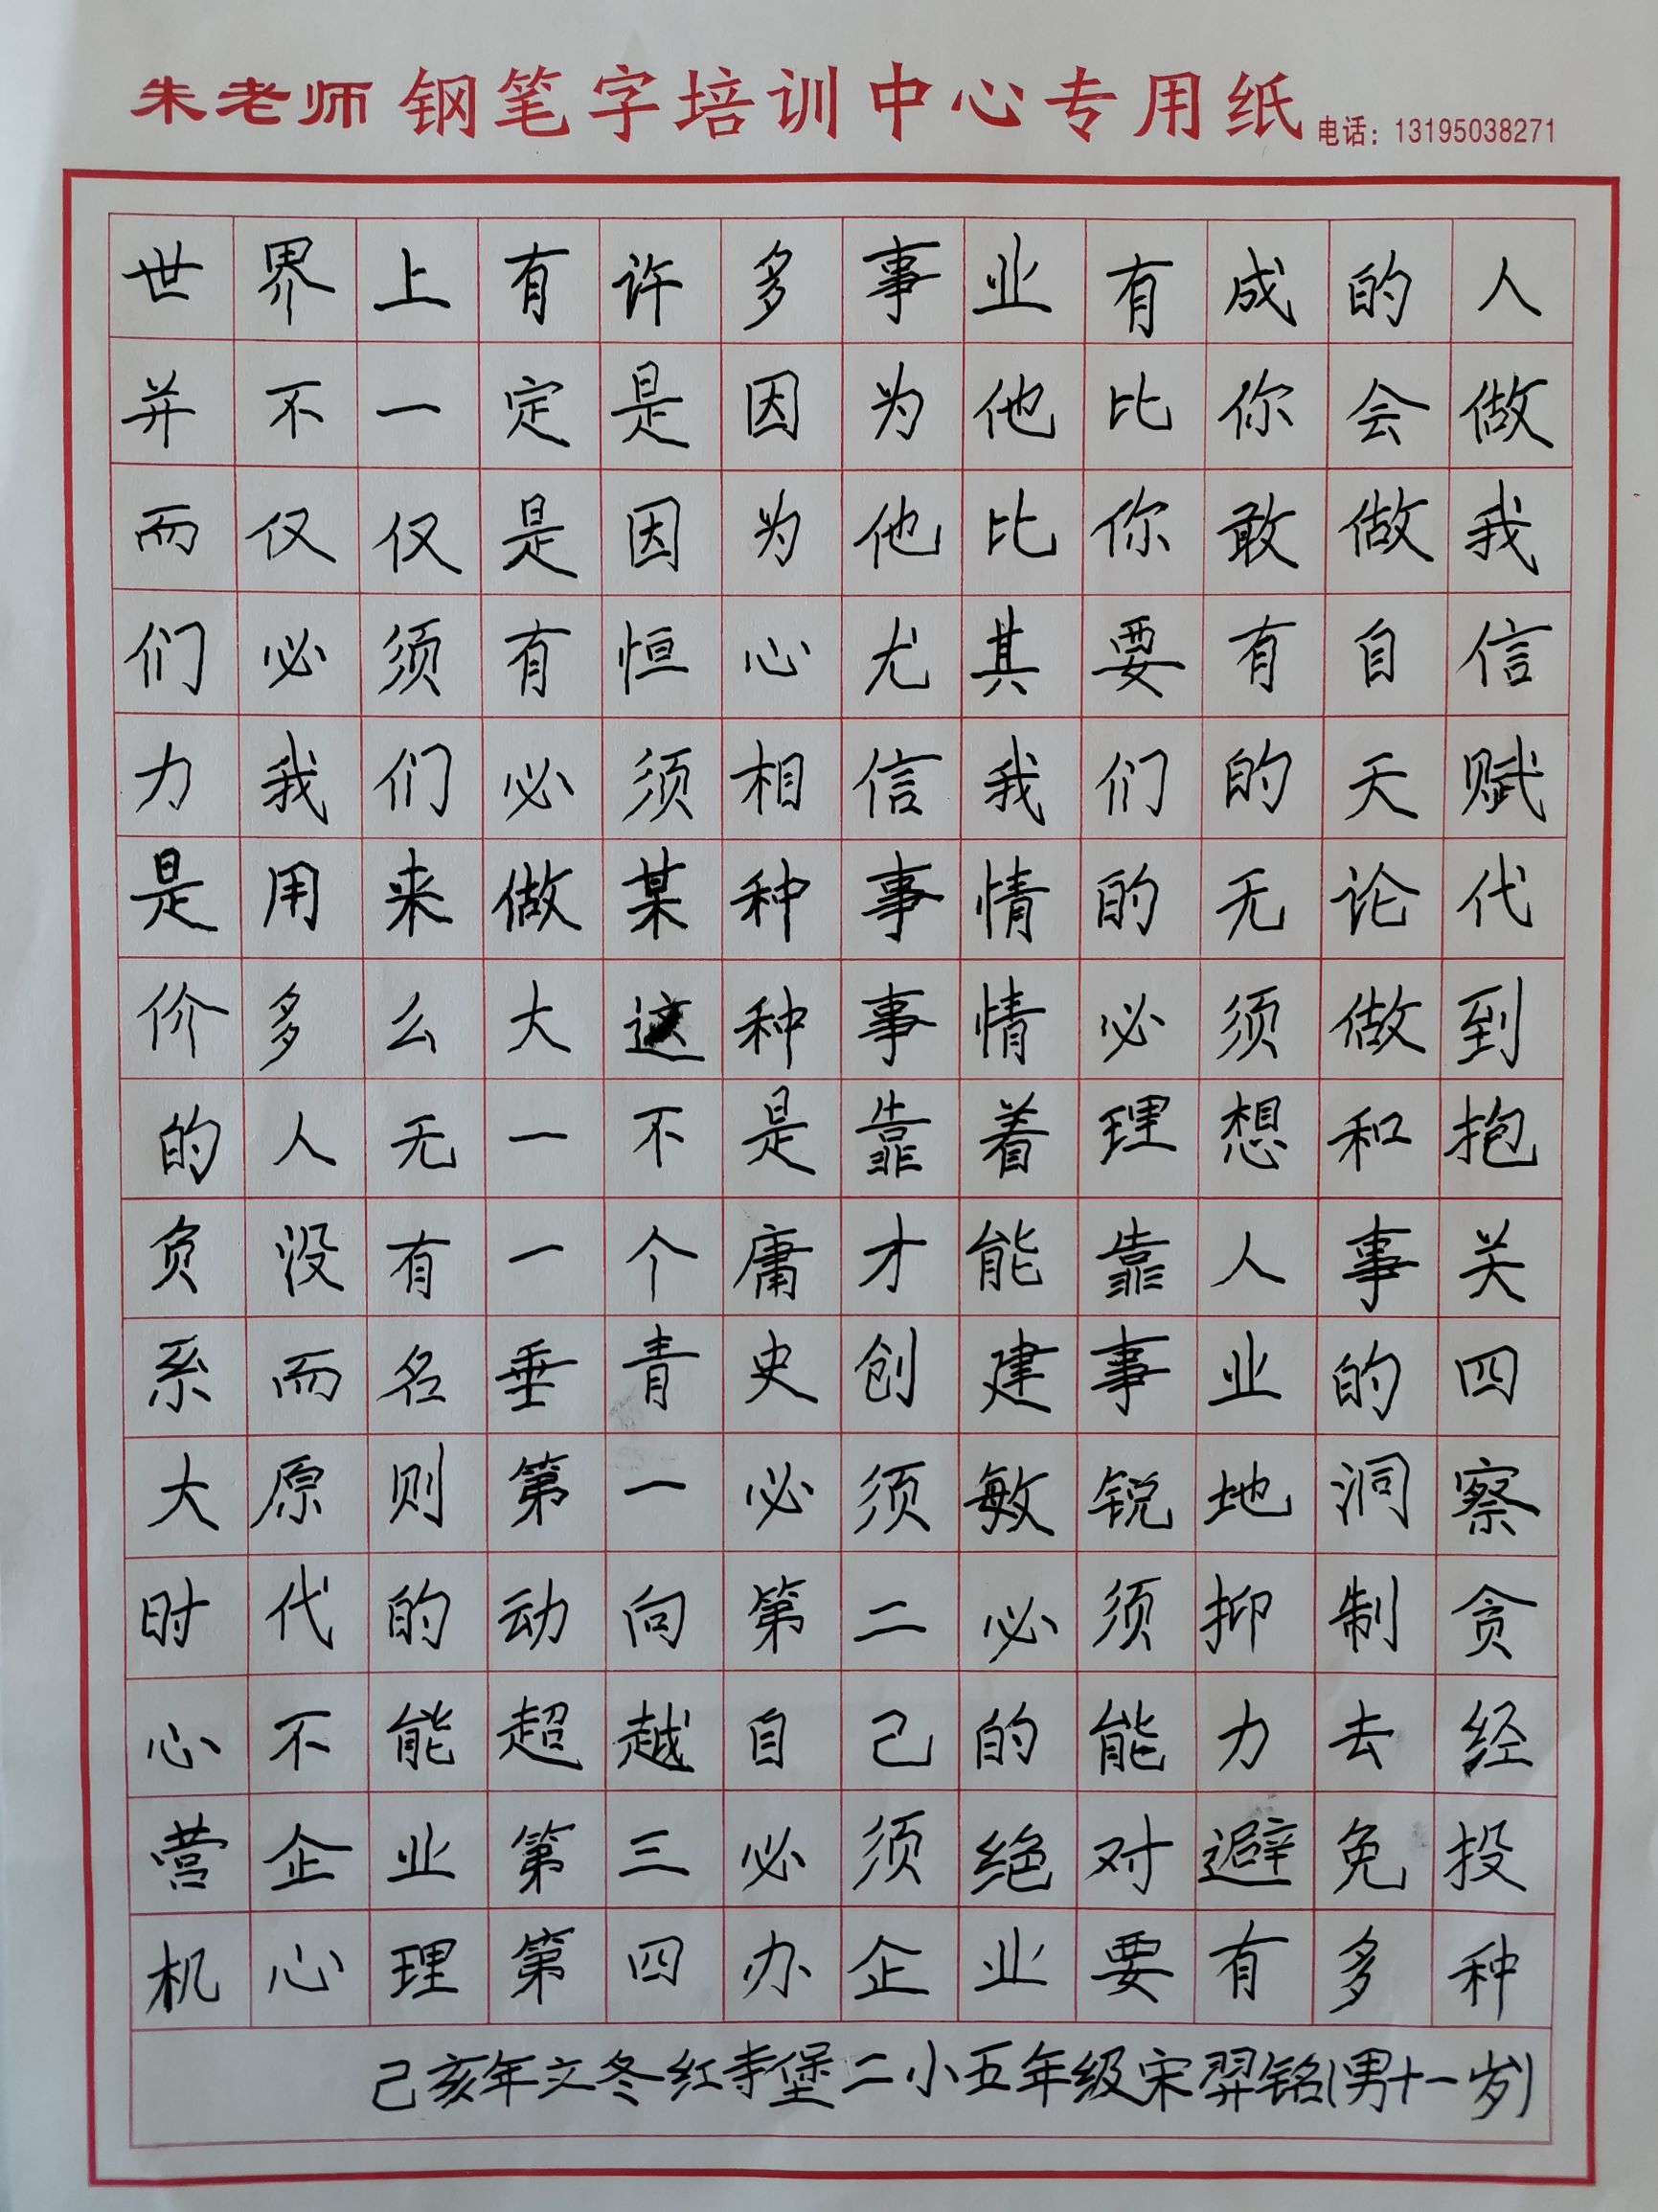 朱老师 钢笔字培训中心专用纸 电话：13195038271
世界上有许多事业有成的人
并不一定是因为他比你会做
而仅仅是因为他比你敢做我
们必须有恒心尤其要有自信
力我们必须相信我们的天赋
是用来做某种事情的无论代
价多么大这种事情必须做到
的人无一不是靠着理想和抱
负没有一个庸才能靠人事关
系而名垂青史创建事业的四
大原则第一必须敏锐地洞察
时代的动向第二必须抑制贪
心不能超越自己的能力去经
营企业第三必须绝对避免投
机心理第四办企业要有多种
己亥年立冬红寺堡二小五年级宋羿铭(男十一岁)